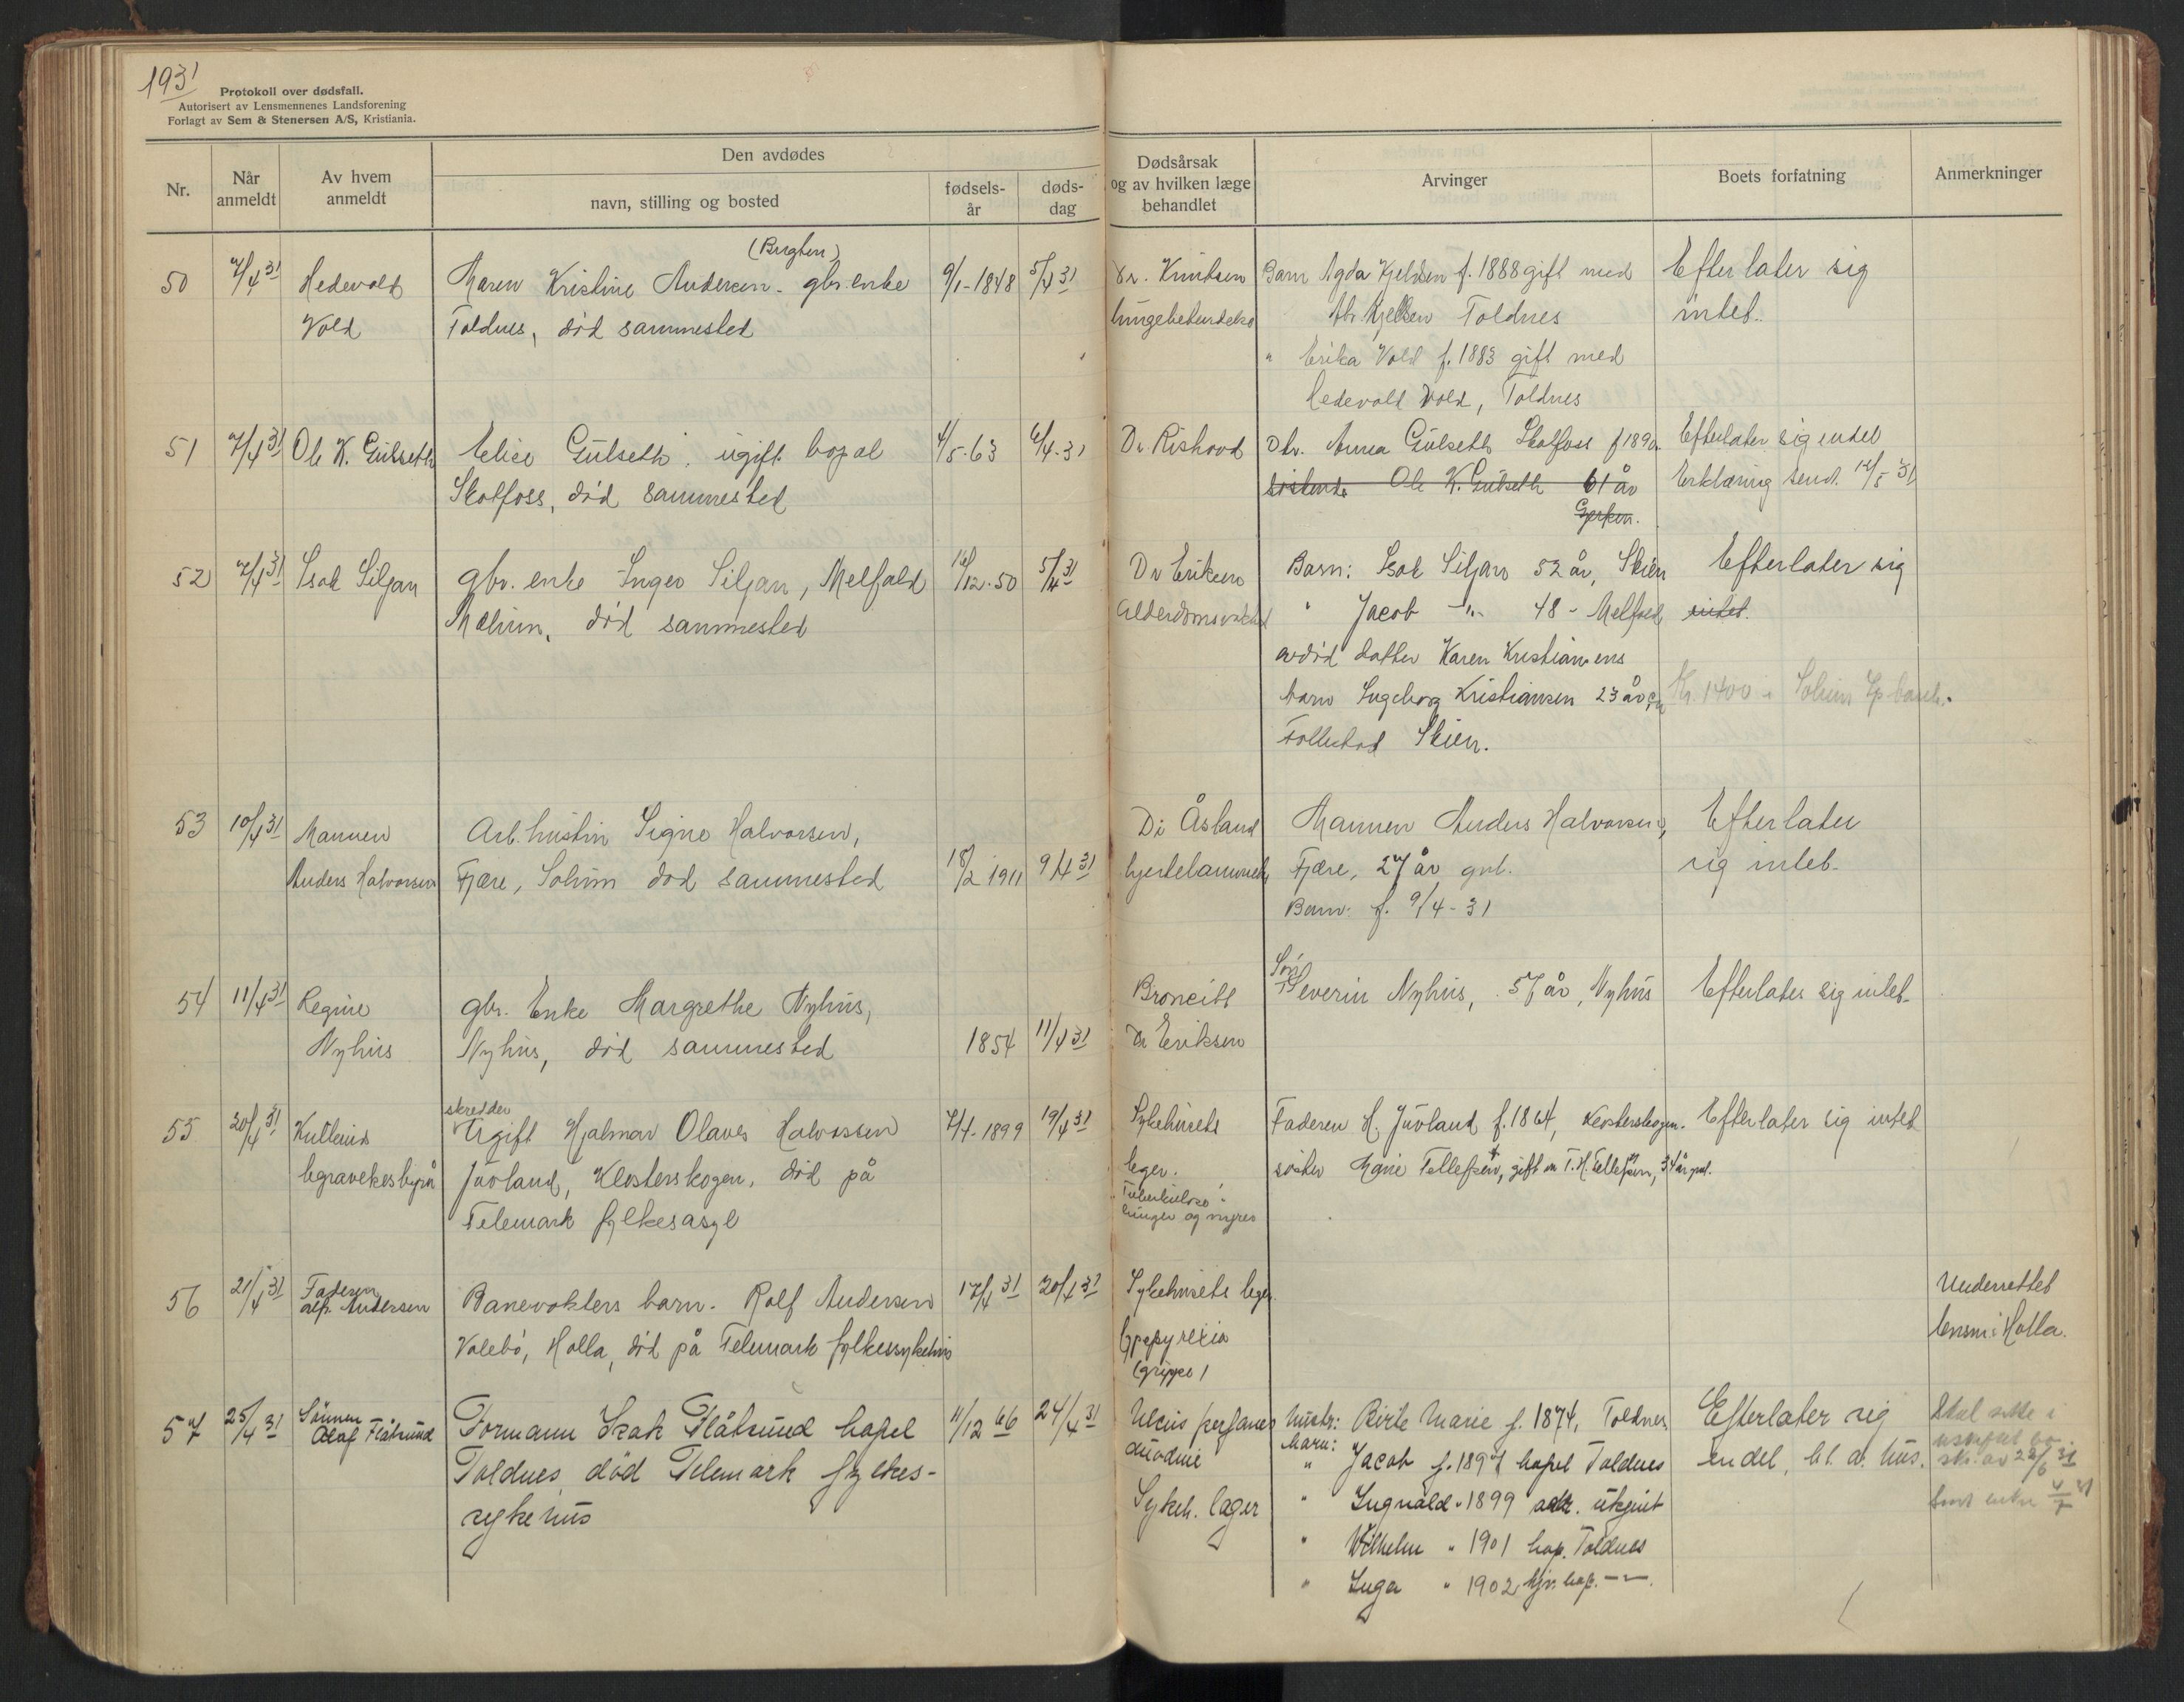 1931
Protokoll over dødsfall.
Autorisert av Lensmennenes Landsforening
Forlagt av Sem & Stenersen A/S, Kristiania.
Nr.
Når anmeldt
Av hvem anmeldt
Den avdødes
navn, stilling og bosted
fødsels-år
døds-dag
Dødsårsak og av hvilken læge behandlet
Arvinger
Boets forfatning
Anmerkninger
50 7/4 31 Hedevold Maren Kristine Andersen - gbr. enke 9/1-1848 5/4 31 Dr. Knutsen Barn Agda Kjeldsen f. 1888 gift med Efterlater sig
Vold Toldnes, död sammested lungebetendelse Kjeldsen Toldnes intet.
" Erika Vold f. 1883 gift med
Hedevold Vold, Toldnes
51 7/4 31 Ole K. Gulseth Elise Gulseth, ugift bopel 4/5-63 6/4-31 Dr Rishovd Dtr. Anna Gulseth Skotfoss f 1890. Efterlater sig endel
Skotfoss, död sammested Ole K. Gulseth 61 år Erklæring sendt 12/5 31
Gjerpen.
52 7/4 31 Isak Siljan gbr. enke Inger Siljan, Melfald 16/12-50 5/4 31 Dr Eriksen Barn: Isak Siljan 52 år, Skien Efterlater sig
Mælum, död sammested " Jacob -"- 48 - Melfald intet.
avdöd datter Karen Kristiansens
barn Ingeborg Kristiansen 23 år, Kr. 1400 i Solum Sp.bank.
Follestad Skien.
53 10/4 31 Mannen Arb. hustru Signe Halvorsen, Dr Åsland Mannen Anders Halvorsen, Efterlater
Anders Halvorsen Fjære, Solum död sammested 18/2 1911 9/4 31 hjertelammelse Fjære, 27 år gml. sig intet.
Barn: f. 9/4-31
54 11/4 31 Regine gbr. Enke Margrethe Nyhus, Broncitt Sön Severin Nyhus, 57 år, Nyhus Efterlater sig intet
Nyhus Nyhus, död sammested 1854 11/4 31 Dr Eriksen
skredder
55 20/4 31 Ugift Hjalmar Olaves Halvorsen 7/7-1899 19/4 31 Sykehusets Faderen H. Juvland f. 1864, Klosterskogen. Efterlater sig intet
begravelsesbyrå Juvland, Klosterskogen, död på leger. söster Marie Tellefsen, gift m T. H. Tellefsen, 34 år gml.
Telemark fylkesasyl Tuberkulose
lunger og nyrer
56 21/4 31 Faderen Banevokters barn. Rolf Andersen 17/4 31 20/4 31 Sykehusets leger Underrettet
Alf. Andersen Valebö, Holla, död på Telemark fylkessykehus lensm i Holla.
(grippe)
57 25/4 31 Sönnen Formann Isak Flåtsund bopel 11/12 66 24/4 31 Ulcus perforans Hustr: Birte Marie f. 1874, Toldnes Efterlater sig Skal sitte i
Olaf Flåtsund Toldnes, död Telemark fylkes- duodeni barn: " Jacob f. 1897 bopel Toldnes endel, bl. a. hus. uskiftet bo.
sykehus Sykeh. læger " Ingvald " 1899 adr. ukjent skr. av 22/6 31
" Wilhelm " 1901 bop. Toldnes
" Inga " 1902 bop. -"-